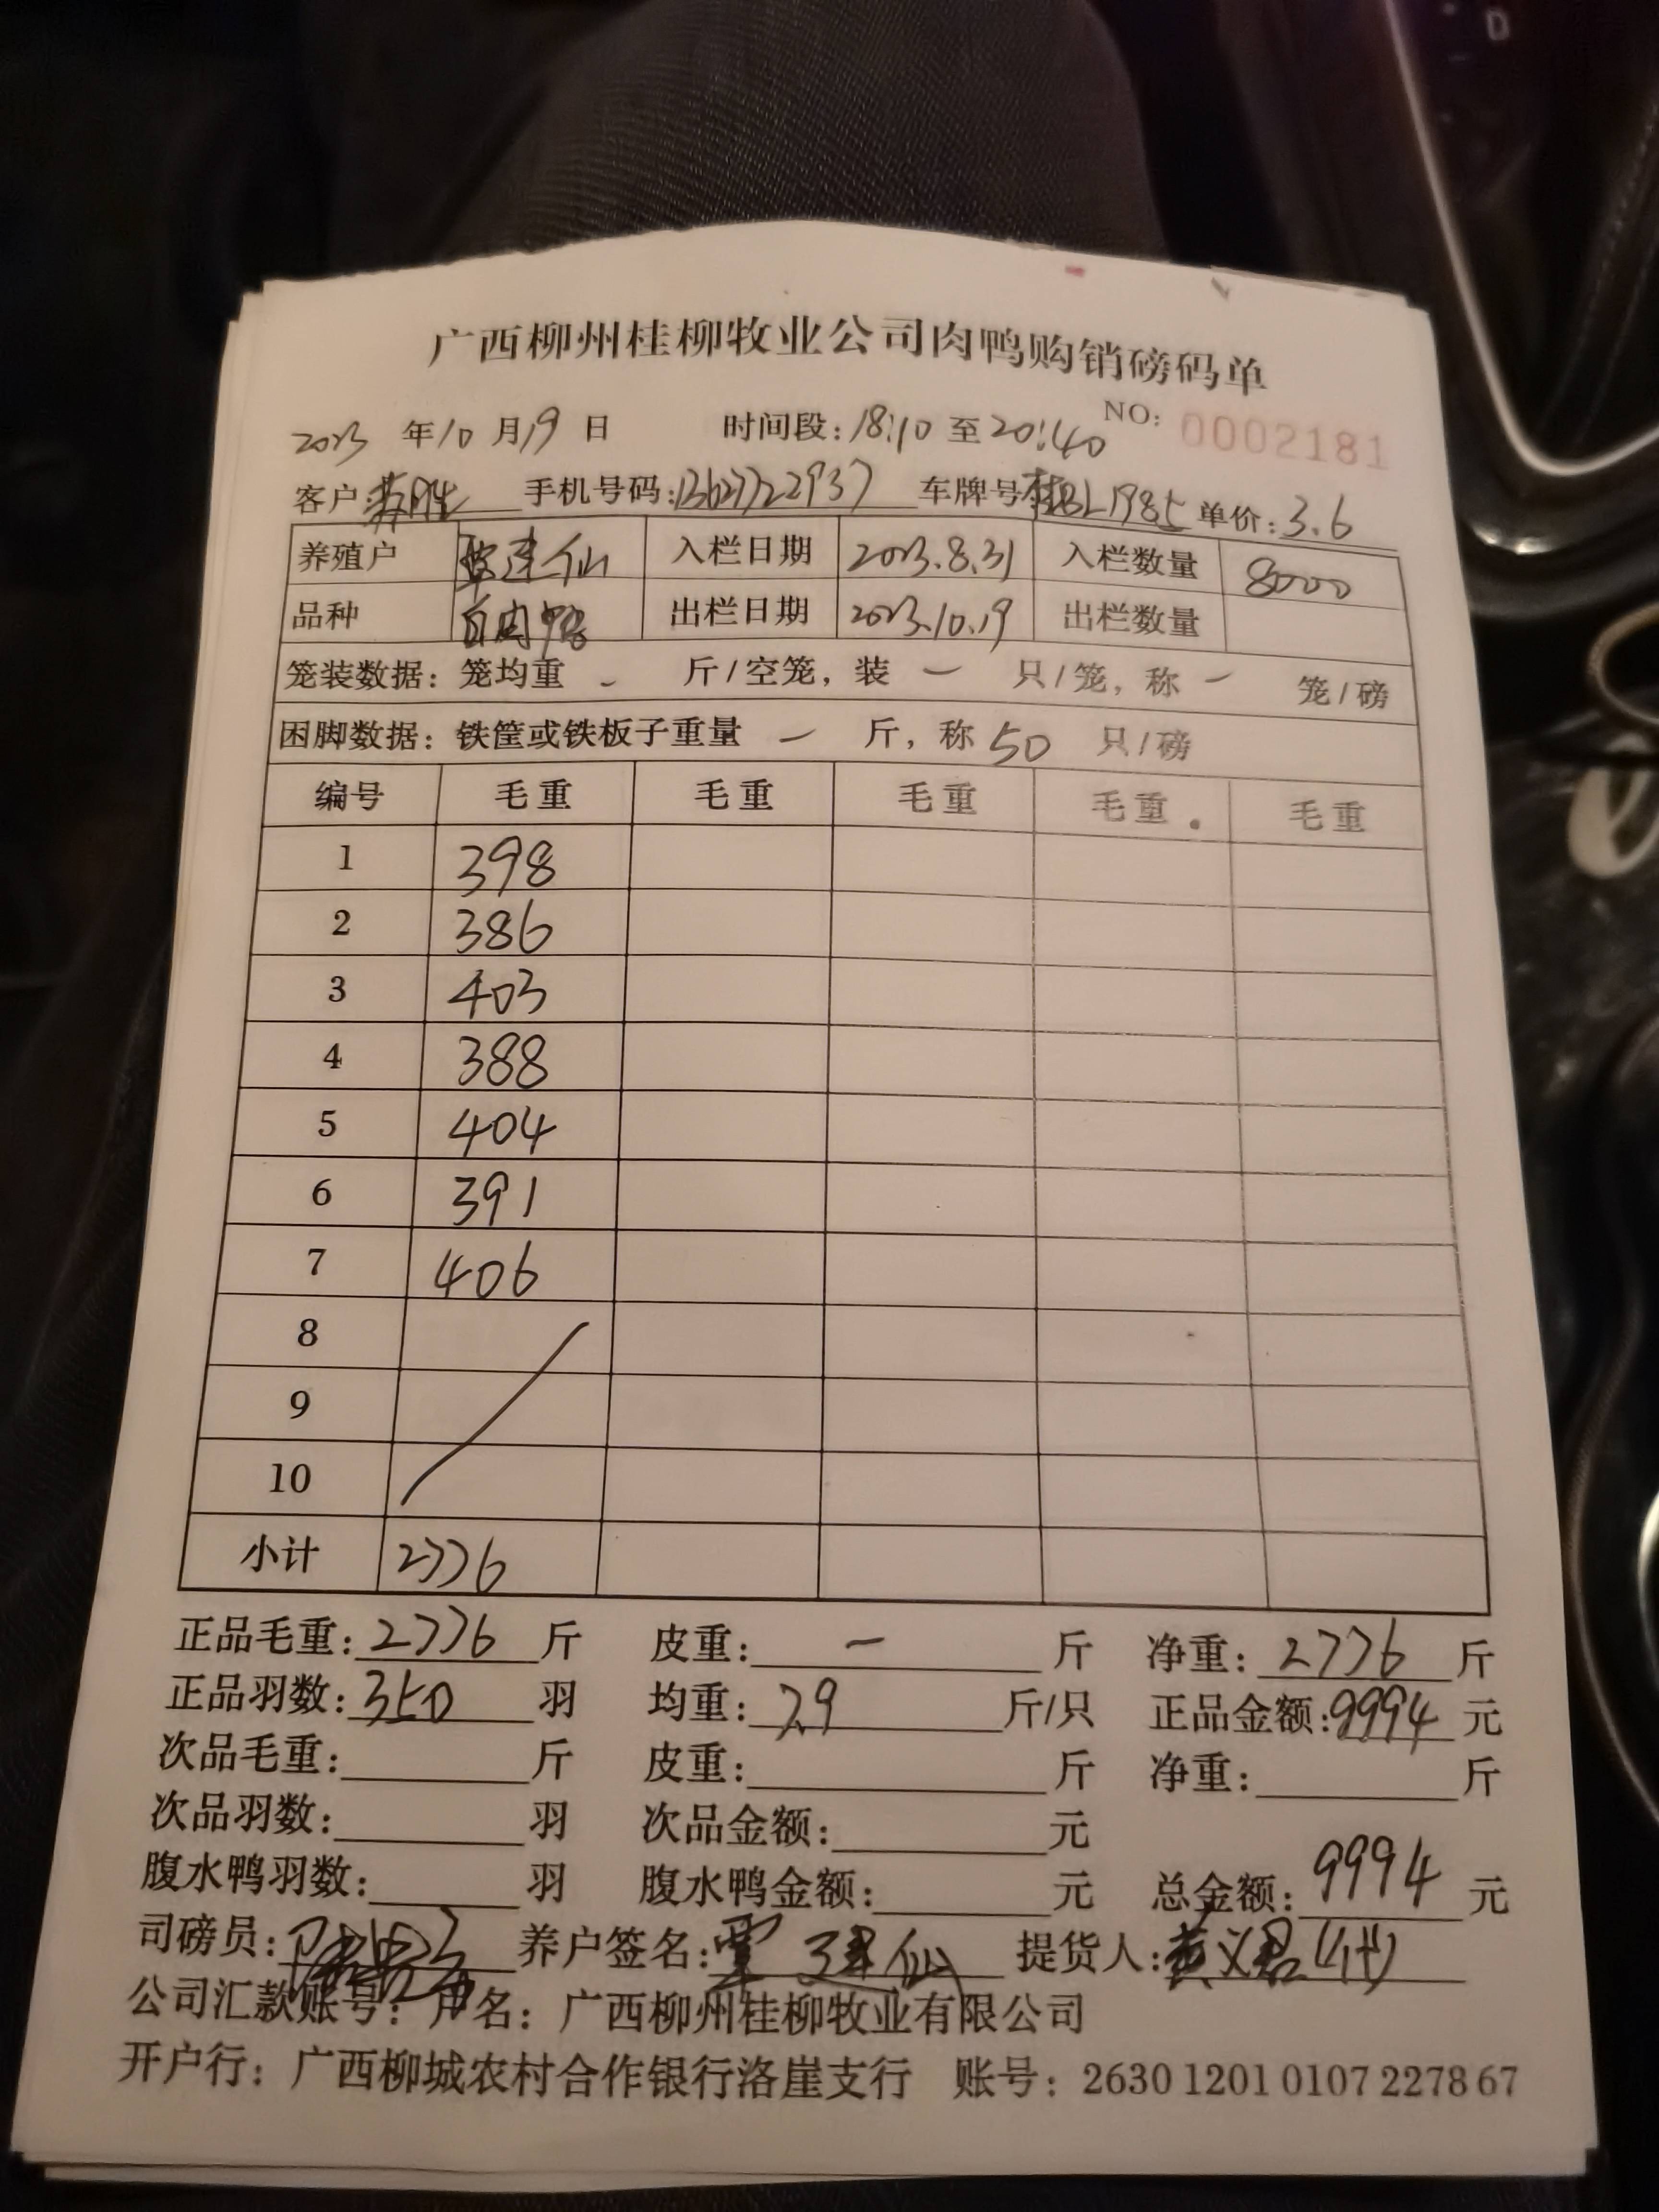 广西柳州桂柳牧业公司肉鸭购销磅码单
2023 年 10 月 19 日 时间段: 18:10 至 20:40 NO: 0002181
客户: 手机号码: 13627722937 车牌号 桂BL1985 单价: 3.6
养殖户 覃连仙 入栏日期 2023.8.31 入栏数量 8000
品种 白肉鸭 出栏日期 2023.10.19 出栏数量
笼装数据: 笼均重 - 斤/空笼, 装 一 只/笼, 称 一 笼/磅
困脚数据: 铁筐或铁板子重量 一 斤, 称 50 只/磅
编号 毛重 毛重 毛重 毛重 毛重
1 398
2 386
3 403
4 388
5 404
6 391
7 406
8
9
10
小计 2776
正品毛重: 2776 斤 皮重: 一 斤 净重: 2776 斤
正品羽数: 350 羽 均重: 7.9 斤/只 正品金额: 9994 元
次品毛重: 斤 皮重: 斤 净重: 斤
次品羽数: 羽 次品金额: 元
腹水鸭羽数: 羽 腹水鸭金额: 元 总金额: 9994 元
司磅员: 养户签名: 覃 仙 提货人: 黄义君(代)
公司汇款账号: 户名: 广西柳州桂柳牧业有限公司
开户行: 广西柳城农村合作银行洛崖支行 账号: 2630 1201 0107 2278 67